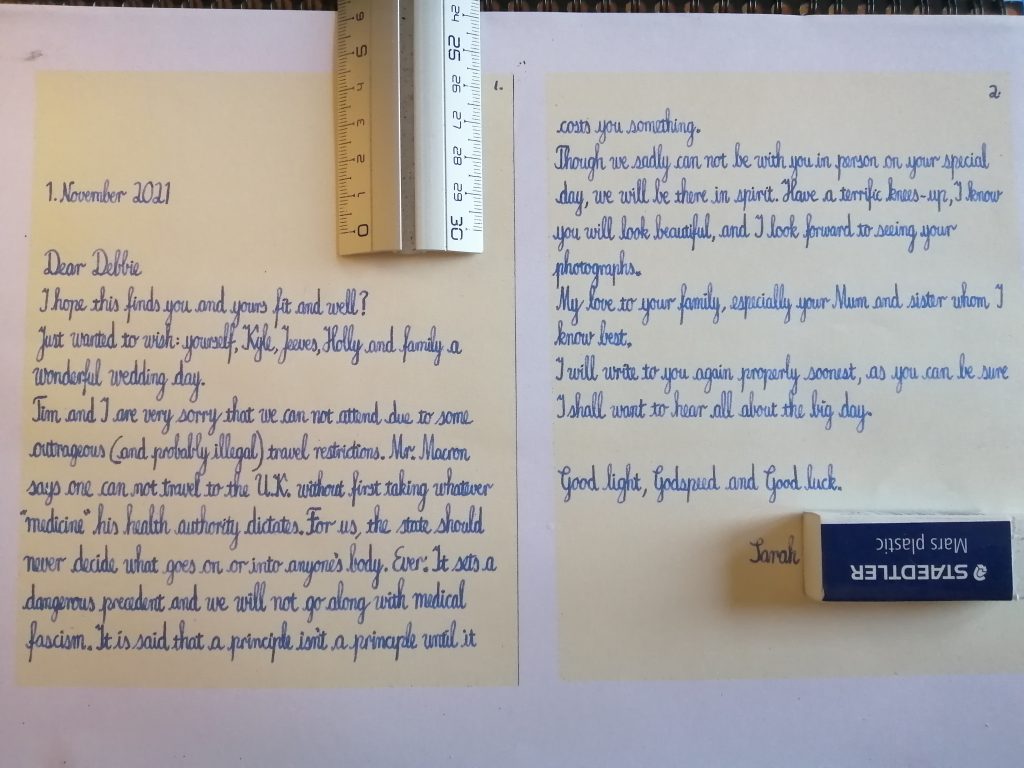 1.
1. November 2021
Dear Debbie
I hope this finds you and yours fit and well?
Just wanted to wish: yourself, Kyle, Jeeves, Holly and family a
wonderful wedding day.
Tim and I are very sorry that we can not attend due to some
outrageous (and probably illegal) travel restrictions. Mr. Macron
says one can not travel to the U.K. without first taking whatever
"medicine" his health authority dictates. For us, the state should
never decide what goes on or into anyone's body. Ever. It sets a
dangerous precedent and we will not go along with medical
fascism. It is said that a principle isn't a principle until it
2
costs you something.
Though we sadly can not be with you in person on your special
day, we will be there in spirit. Have a terrific knees-up, I know
you will look beautiful, and I look forward to seeing your
photographs.
My love to your family, especially your Mum and sister whom I
know best.
I will write to you again properly soonest, as you can be sure
I shall want to hear all about the big day.
Good light, Godspeed and Good luck.
Sarah
STAEDTLER
Mars plastic
0 1 2 3 4 5 6
24 25 26 27 28 29 30